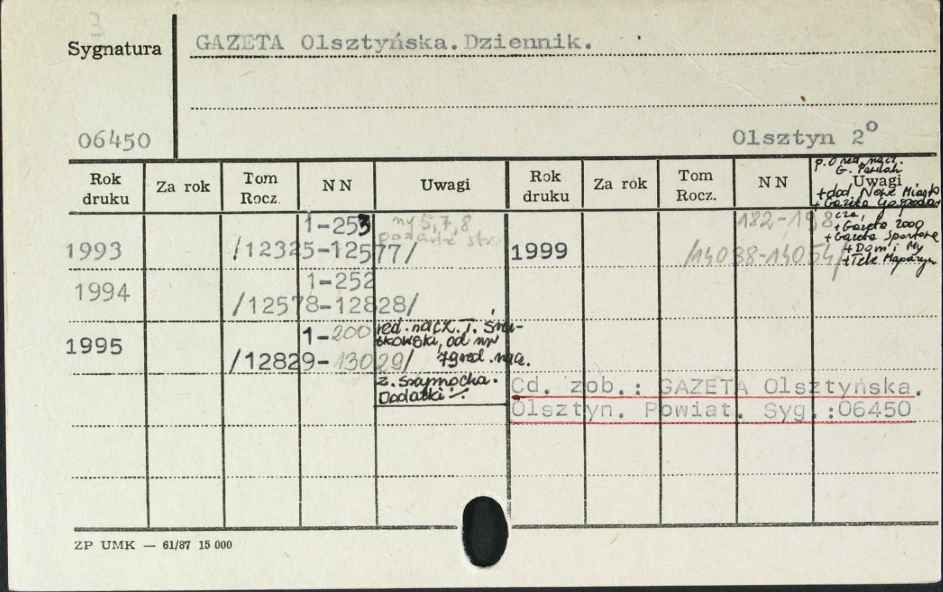 3
Sygnatura GAZETA Olsztyńska. Dziennik.
06450 Olsztyn 2°
Rok druku Za rok Tom Rocz. NN Uwagi Rok druku Za rok Tom Rocz. NN Uwagi
p.o red. nacz.
G.
+ dod. Nowe Miasto
+ Gazeta Gospodar-
cza,
+ Gazeta 2000
+ Gazeta Sportowa
+ Dom i My
+ Tele Magazyn
1-253 nry 5,7,8
1993 /12325-12577/
182-198
1999 /14038-14054/
1-252
1994 /12578-12828/
1995 1-200 red. nacz. T.
od nr
/12829-13029/ 79 red. nacz.
Z. Szymocha.
Dodatki:
Cd. zob.: GAZETA Olsztyńska.
Olsztyn. Powiat. Syg.:06450
ZP UMK — 61/87 15 000